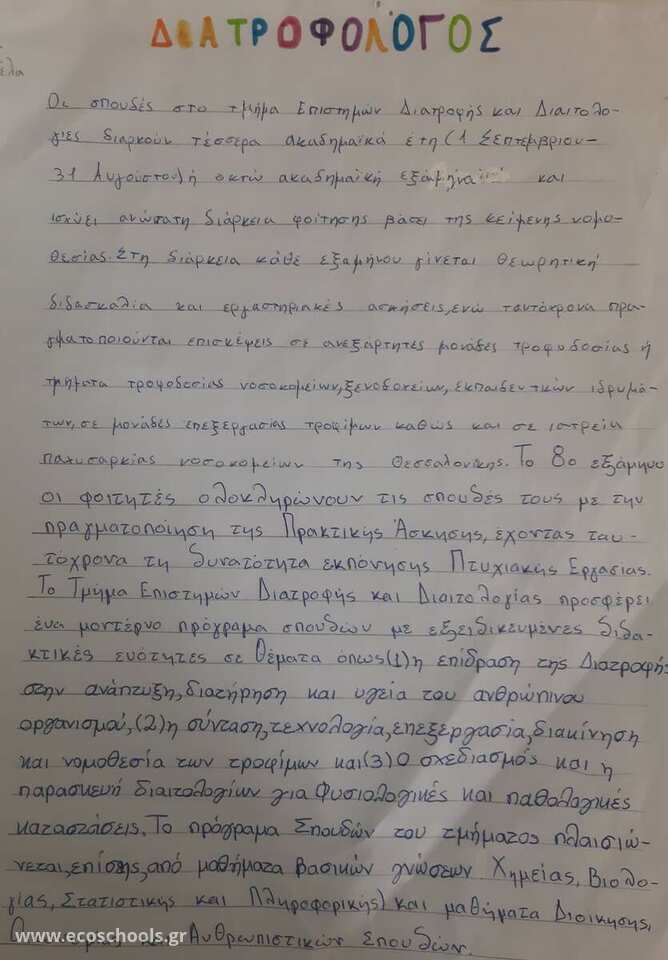 ΔΙΑΤΡΟΦΟΛΟΓΟΣ
έλια
Οι σπουδές στο τμήμα Επιστημών Διατροφής και Διαιτολο-
γιες διαρκούν τέσσερα ακαδημαϊκά έτη (1 Σεπτεμβριου-
31 Αυγούστου) ή οκτώ ακαδημαϊκή εξαμήνα και
ισχύει ανώτατη διάρκεια φοίτησης βάσει της κείμενης νομο-
θεσίας. Στη διάρκεια κάθε εξαμήνου γίνεται θεωρητική
διδασκαλία και εργαστηριακές ασκήσεις, ενώ ταυτόχρονα πρα-
γματοποιούνται επισκέψεις σε ανεξάρτητες μονάδες τροφοδοσίας ή
τμήματα τροφοδεσίας νοσοκομείων, ξενοδοχείων, εκπαιδευτικών ιδρυμά-
των, σε μονάδες επεξεργασίας τροφίμων καθώς και σε ιατρεία
παχυσαρκίας νοσοκομείων της Θεσσαλονίκης. Το 8ο εξάμηνο
οι φοιτητές ολοκληρώνουν τις σπουδές τους με την
πραγματοποίηση της Πρακτικής Άσκησης, έχοντας ταυ-
τόχρονα τη δυνατότητα εκπόνησης Πτυχιακής Εργασίας.
Το Τμήμα Επιστημών Διατροφής και Διαιτολογίας προσφέρει
ένα μοντέρνο πρόγραμα σπουδών με εξειδικευμένες διδα-
κτικές ενότητες σε θέματα όπως (1) η επίδραση της Διατροφής
στην ανάπτυξη, διατήρηση και υγεία του ανθρώπινου
οργανισμού, (2) η σύνταση, τεχνολογία, επεξεργασία, διακίνηση
και νομοθεσία των τροφίμων και (3) Ο σχεδιασμός και η
παρασκευή διαιτολογίων για Φυσιολογικές και παθολογικές
καταστάσεις. Το πρόγραμα Σπουδών του τμήματος πλαισιώ-
νεται, επίσης, από μαθήματα βασικών γνώσεων Χημείας, Βιολο-
γίας, Στατιστικής και Πληροφορικής) και μαθήματα Διοικησης,
Ανθρωπιστικών Σπουδών.
www.ecoschools.gr